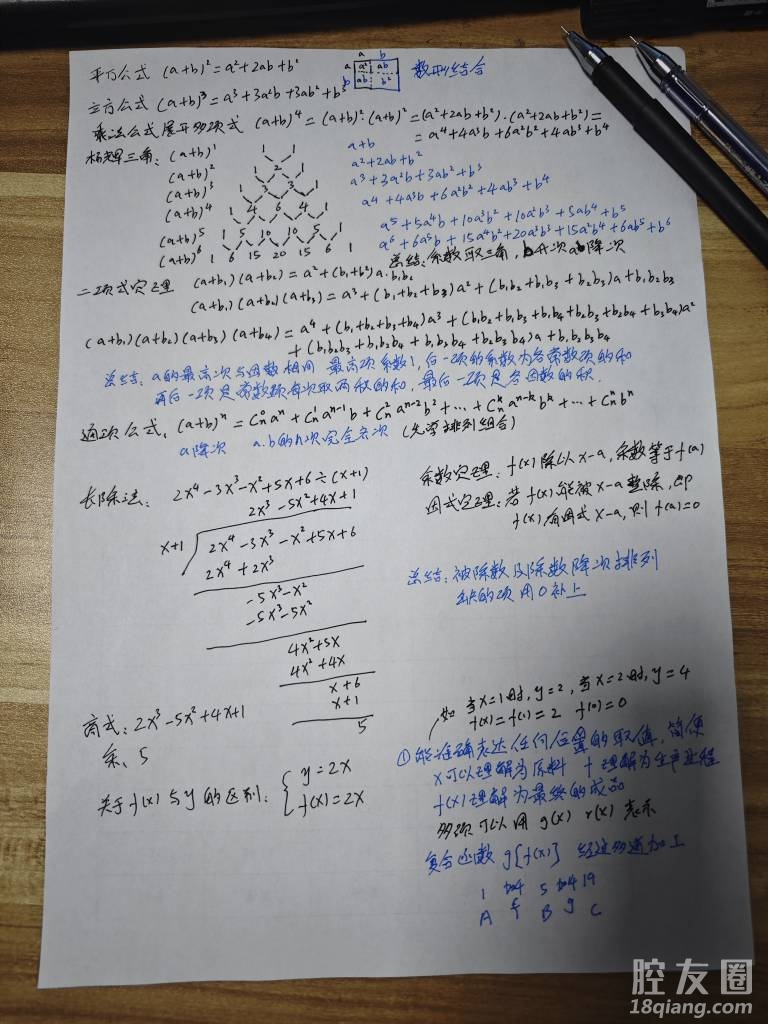 平方公式 (a+b)²=a²+2ab+b²
a b
a a² ab
b ab b²
数形结合
立方公式 (a+b)³=a³+3a²b+3ab²+b³
乘法公式展开多项式 (a+b)⁴=(a+b)²·(a+b)²=(a²+2ab+b²)·(a²+2ab+b²)=
=a⁴+4a³b+6a²b²+4ab³+b⁴
杨辉三角: (a+b)¹ 1 1 a+b
(a+b)² 1 2 1 a²+2ab+b²
(a+b)³ 1 3 3 1 a³+3a²b+3ab²+b³
(a+b)⁴ 1 4 6 4 1 a⁴+4a³b+6a²b²+4ab³+b⁴
(a+b)⁵ 1 5 10 10 5 1 a⁵+5a⁴b+10a³b²+10a²b³+5ab⁴+b⁵
(a+b)⁶ 1 6 15 20 15 6 1 a⁶+6a⁵b+15a⁴b²+20a³b³+15a²b⁴+6ab⁵+b⁶
总结:系数取三角,b升次a降次
二项式定理 (a+b₁)(a+b₂)=a²+(b₁+b₂)a·b₁b₂
(a+b₁)(a+b₂)(a+b₃)=a³+(b₁+b₂+b₃)a²+(b₁b₂+b₁b₃+b₂b₃)a+b₁b₂b₃
(a+b₁)(a+b₂)(a+b₃)(a+b₄)=a⁴+(b₁+b₂+b₃+b₄)a³+(b₁b₂+b₁b₃+b₁b₄+b₂b₃+b₂b₄+b₃b₄)a²
+(b₁b₂b₃+b₁b₂b₄+b₁b₃b₄+b₂b₃b₄)a+b₁b₂b₃b₄
总结:a的最高次与因数相同 最高项系数1,后一项的系数为各常数项的和
再后一项是常数项每次取两积的和,最后一项是各因数的积.
通项公式. (a+b)ⁿ=Cₙ⁰aⁿ+Cₙ¹aⁿ⁻¹b+Cₙ²aⁿ⁻²b²+…+Cₙᵏaⁿ⁻ᵏbᵏ+…+Cₙⁿbⁿ
a降次 a.b的n次完全齐次 (先学排列组合)
长除法: 2x⁴-3x³-x²+5x+6÷(x+1)
2x³-5x²+4x+1
x+1 2x⁴-3x³-x²+5x+6
2x⁴+2x³
-5x³-x²
-5x³-5x²
4x²+5x
4x²+4x
x+6
x+1
5
商式:2x³-5x²+4x+1
余、5
余数定理:f(x)除以x-a,余数等于f(a)
因式定理:若f(x)能被x-a整除,即
f(x)有因式x-a,则f(a)=0
总结:被除数及除数降次排列
缺的项用0补上
关于f(x)与y的区别: y=2x
f(x)=2x
如 当x=1时,y=2,当x=2时,y=4
f(x)=f(1)=2 f(0)=0
①能准确表达任何位置的取值,简便
x可以理解为原料 f理解为生产过程
f(x)理解为最终的成品
多项可以用g(x) r(x)表示
复合函数g[f(x)] 经过多道加工
1 5 19
A f B g C
腔友圈
18qiang.com